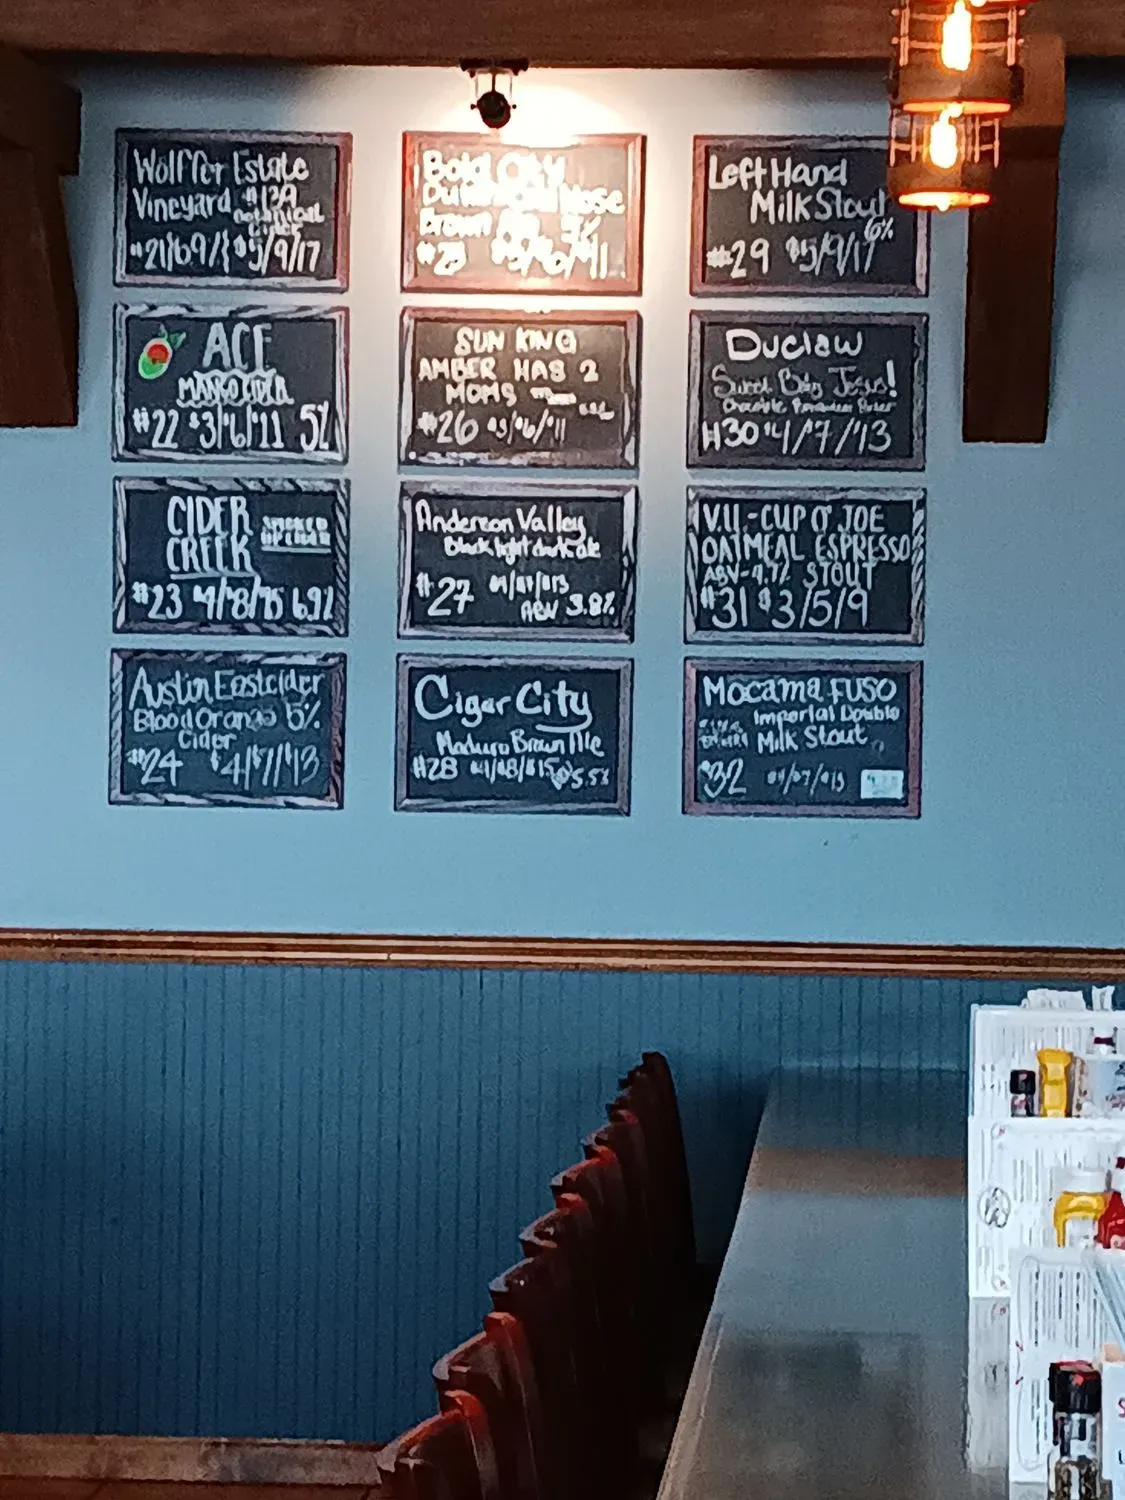 Wölffer Estate
Vineyard #139
Botanical
Cider
#21 6.9% $5/9/17
ACE
MANGO CIDER
#22 $3/6/11 5%
CIDER
CREEK
#23 4/8/15 6.9%
Austin Eastcider
Blood Orange 5%
Cider
#24 $4/$7/$13
Bold City
Duke's Cold Nose
Brown Ale 5%
#25 $3/6/11
SUN KING
AMBER HAS 2
MOMS
#26 $3/$6/$11
Anderson Valley
Black light dark ale
#27 $4/$7/$13
ABV 3.8%
Cigar City
Maduro Brown Ale
#28 $4/$8/$15 5.5%
Left Hand
Milk Stout
6%
#29 $5/9/17
Duclaw
Sweet Baby Jesus!
Chocolate Peanut Butter
#30 $4/7/13
V.U.-CUP O' JOE
OATMEAL ESPRESSO
ABV-4.7% STOUT
#31 $3/5/9
MOCAMA FUSO
Imperial Double
Milk Stout
#32 $4/$7/$13